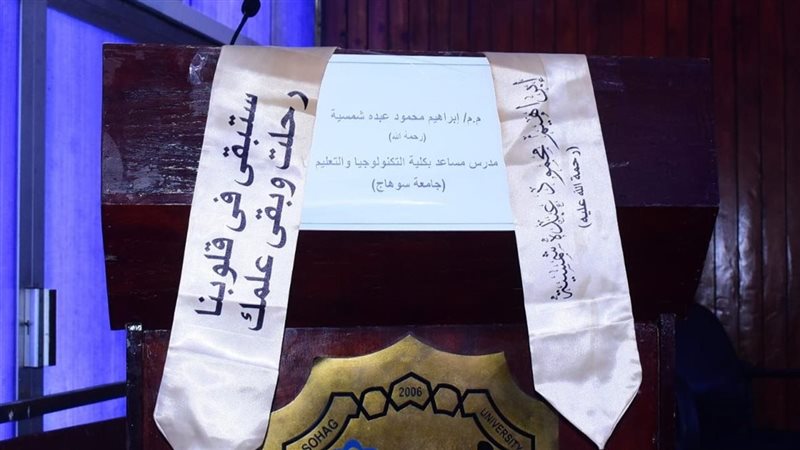 رحلت وبقى علمك
ستبقى فى قلوبنا
م.م/ إبراهيم محمود عبده شمسية
(رحمة الله)
مدرس مساعد بكلية التكنولوجيا والتعليم
(جامعة سوهاج)
إبراهيم محمود عبده شمسية
(رحمة الله عليه)
SOHAG 2006 UNIVERSITY